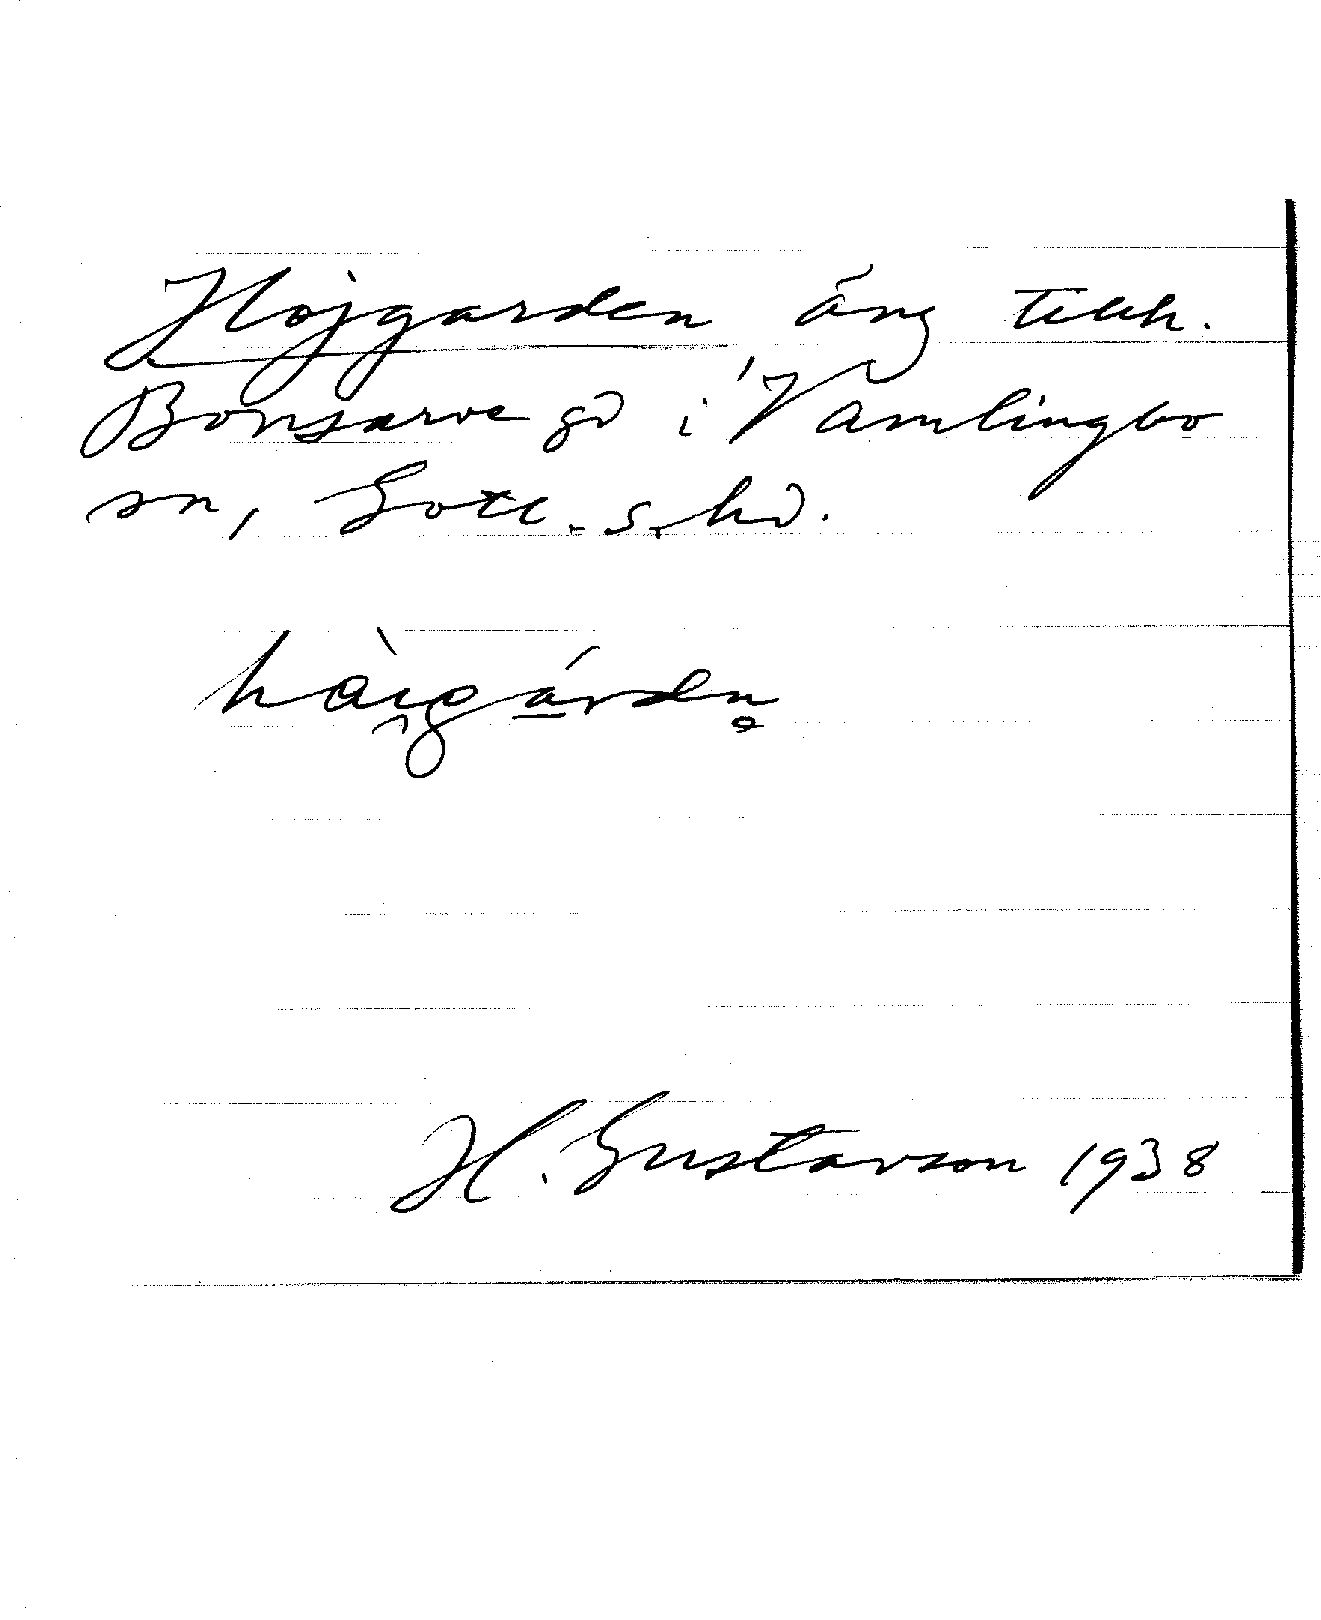 Hojgarden äng tillh.
Bonsarve gd i Vamlingbo
sn, Gotl. s. hd.
hàigárdn̥
H. Gustavson 1938